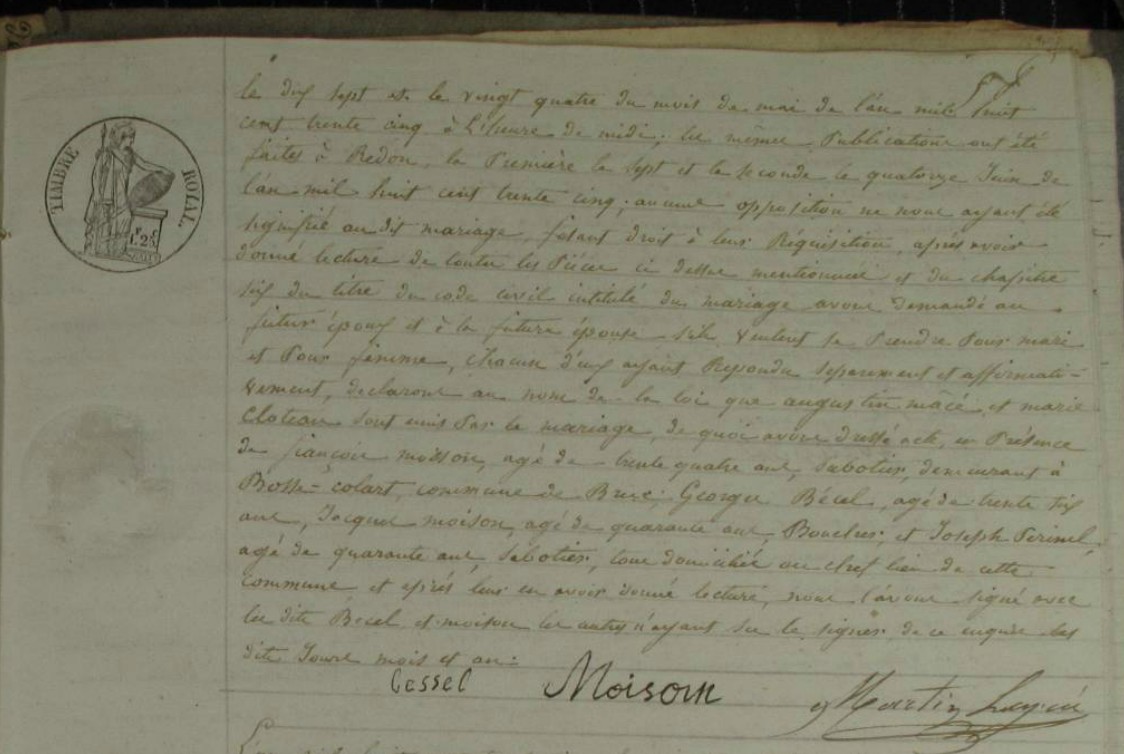 le dix sept et le vingt quatre du mois de mai de l'an mil huit
cent trente cinq à L'heure de midi; les mêmes Publications ont été
faites à Redon, la Première le sept et la seconde le quatorze Juin de
l'an mil huit cent trente cinq; aucune opposition ne nous ayant été
signifié au dit mariage, fesant droit à leur Réquisition, après avoir
donné lecture de toutes les Pièces ci dessus mentionnées et du chapitre
six du titre du code civil intitulé du mariage avons demandé au
futur époux et à la future épouse s'ils veulent se Prendre Pour mari
et Pour femme, chacun d'eux ayant Repondu séparement et affirmati-
vement, declarons au nom de la loi que augustin macé et marie
Cloteau sont unis Par le mariage, de quoi avons dressé acte, en Présence
de françois moison, agé de trente quatre ans, Sabotier, demeurant à
Bosse-colart, commune de ; Georges Bécel, agé de trente six
ans, Jacques moison, agé de quarante ans, Boucher; et Joseph Perinel,
agé de quarante ans, Sabotier, tous domiciliés au chef lieu de cette
commune et après leur en avoir donné lecture, nous l'avons signé avec
les dits Becel et moison les autres n'ayant su le signer de ce enquis les
dits Jours mois et an:
TIMBRE ROYAL
1.F 25.C
Cessel Moisom Martin